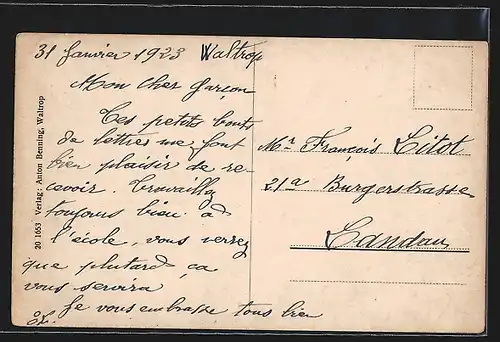 31 Janvier 1923 Waltrop
Mon cher garçon
Tes petits bouts
de lettres me font
bien plaisir de re-
cevoir. Travaillez
toujours bien à
l'école, vous verrez
que plutard ça
vous servira
Je vous embrasse tous bien
Mr. François Litot
21a Burgerstrasse
Landau
20 1653 Verlag: Anton Benning, Waltrop